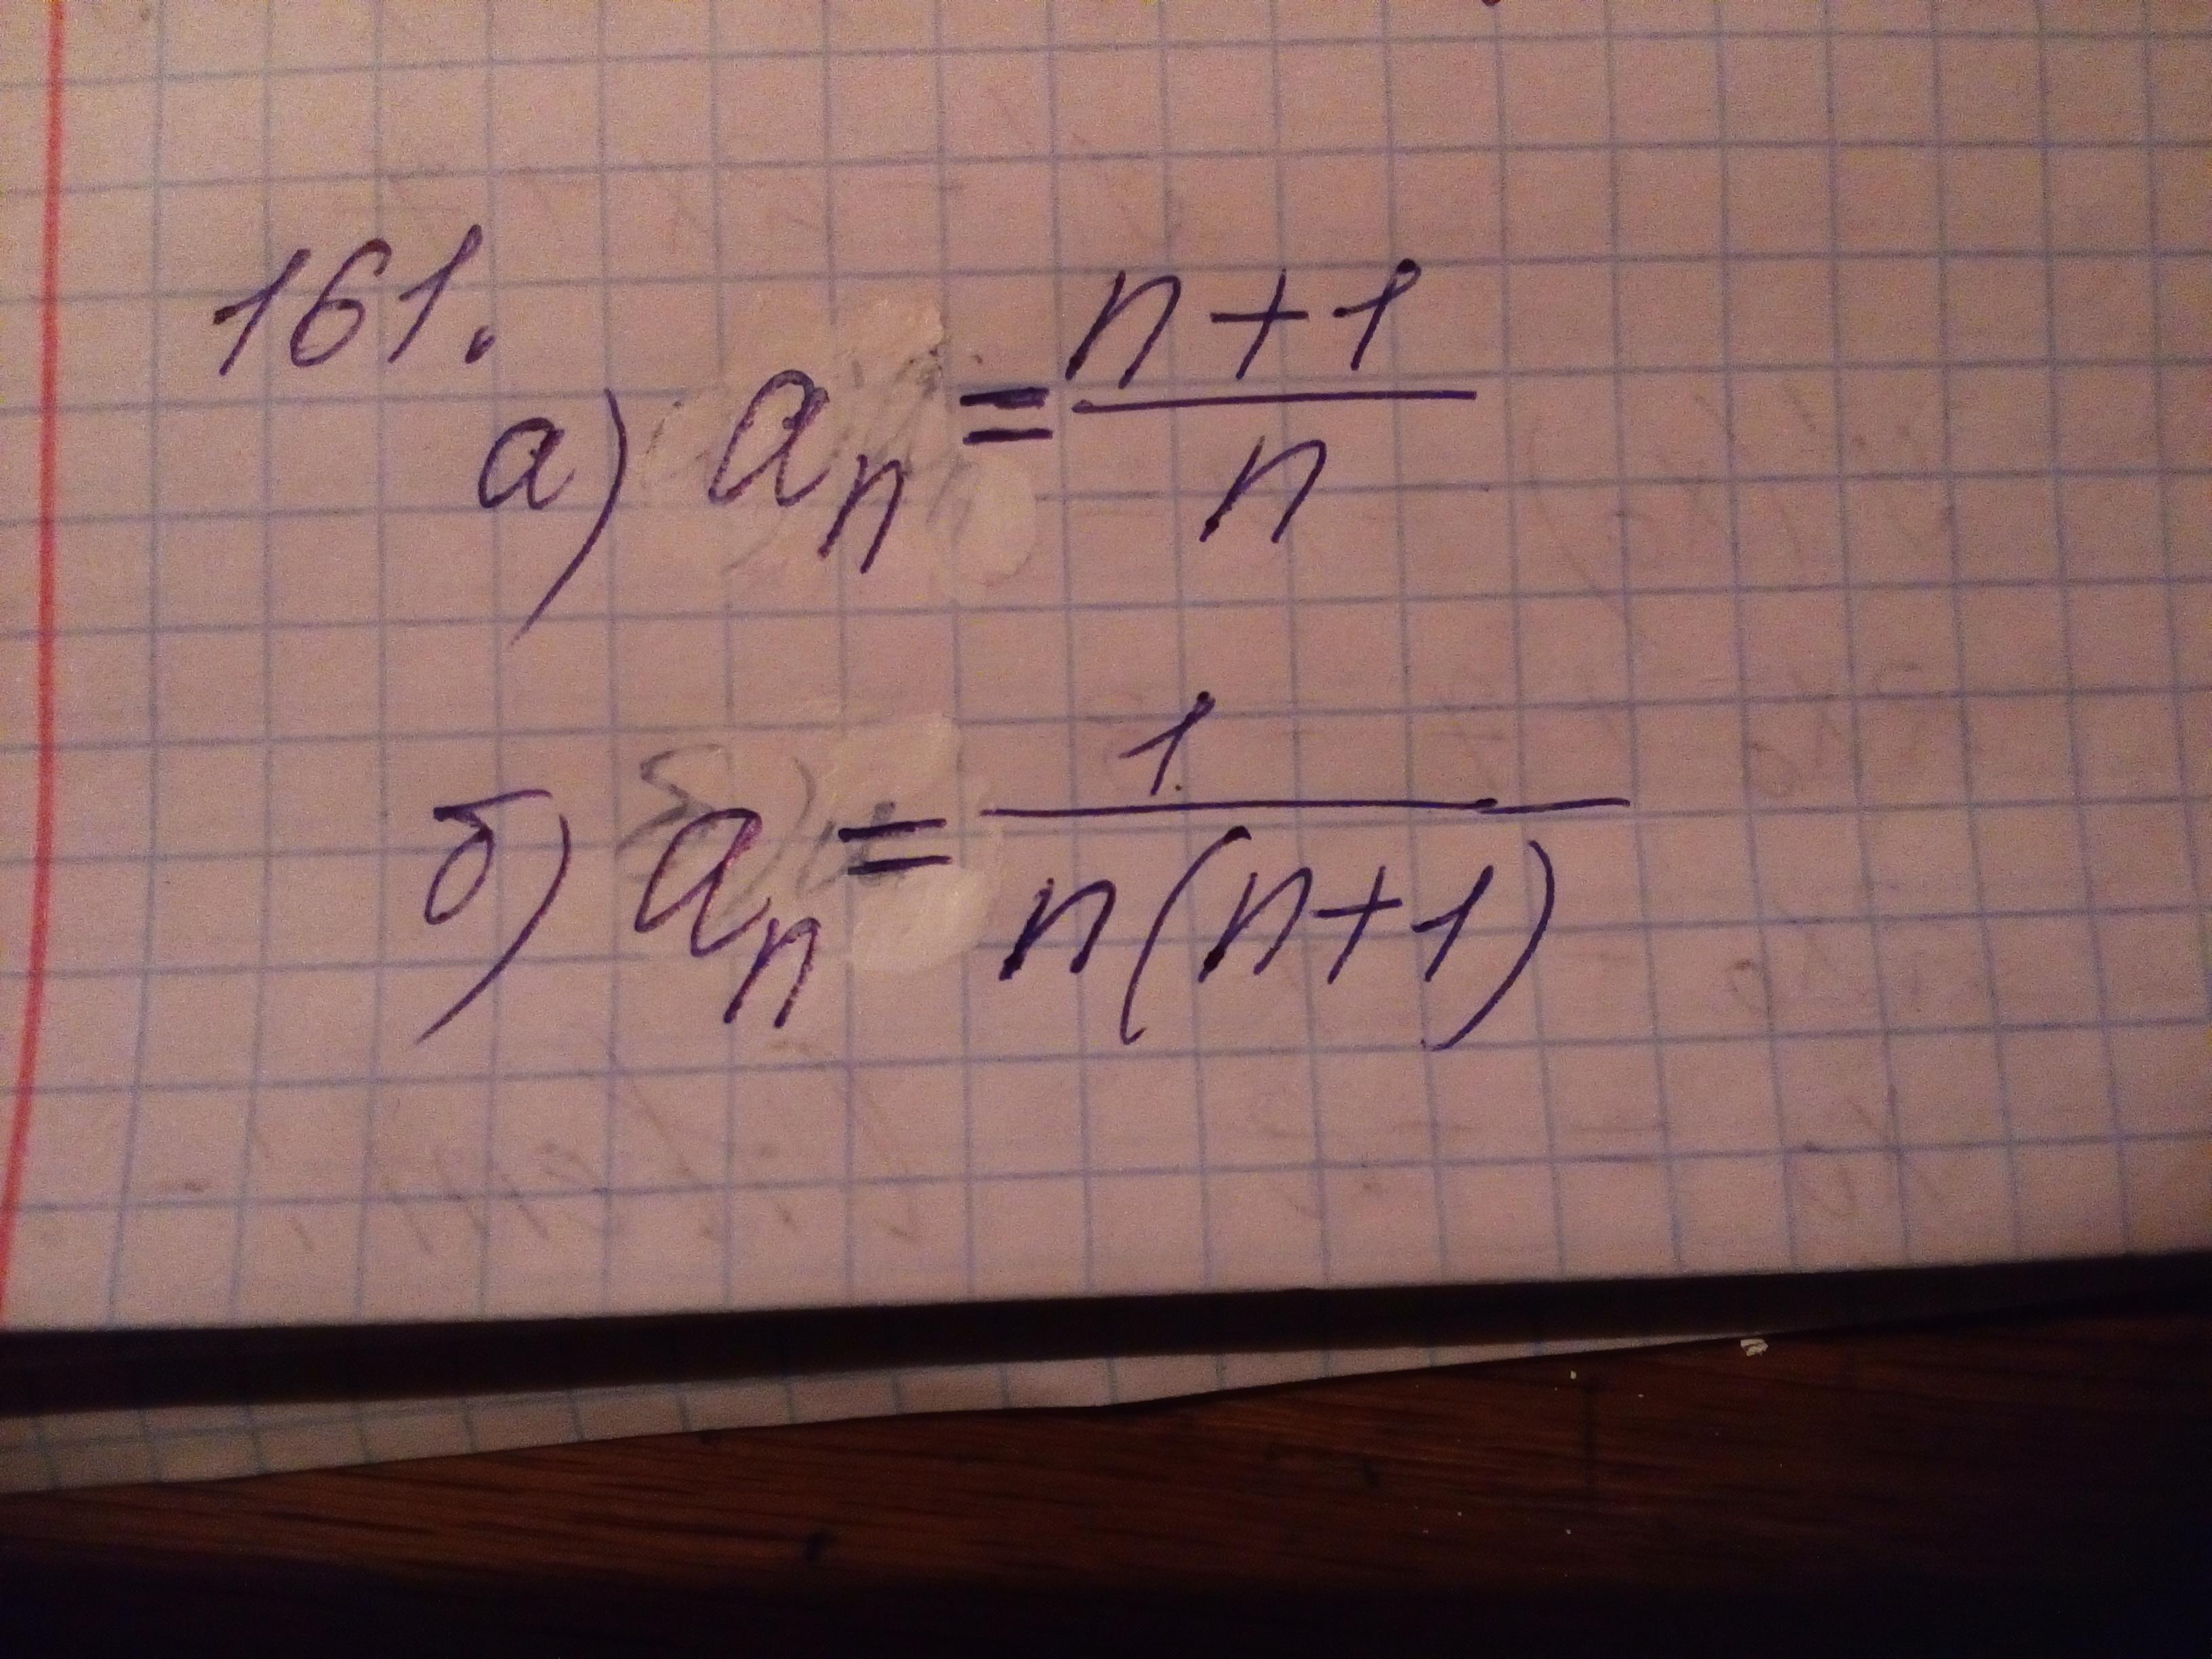 161.
а) aₙ = (n+1)/n
б) aₙ = 1/(n(n+1))